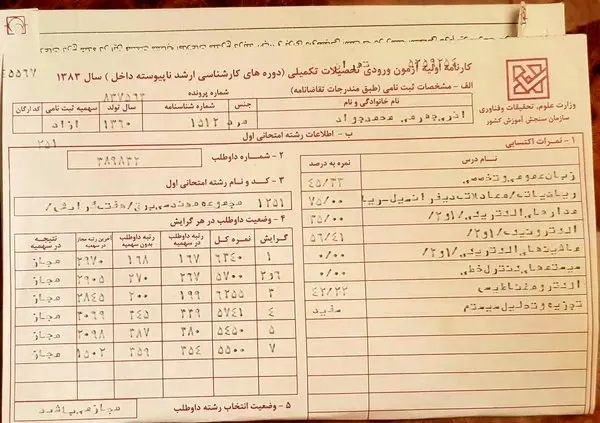 کارنامه اولیه آزمون ورودی تحصیلات تکمیلی (دوره های کارشناسی ارشد ناپیوسته داخل) سال ۱۳۸۳
وزارت علوم، تحقیقات و فناوری
سازمان سنجش آموزش کشور
الف - مشخصات ثبت نامی (طبق مندرجات تقاضانامه)
شماره پرونده
۸۳۷۵۶۳
نام خانوادگی و نام
جنس
شماره شناسنامه
سال تولد
سهمیه ثبت نامی
کد ارگان
محمدجواد
مرد
۱۵۱۲
۱۳۶۰
آزاد
۲۵۱
ب - اطلاعات رشته امتحانی اول
۱ - نمرات اکتسابی
نام درس
نمره به درصد
زبان عمومی و تخصصی
۴۵/۳۳
ریاضیات/معادلات دیفرانسیل-ریا
۷۵/۰۰
مدارهای الکتریکی/۱و۲/
۳۵/۰۰
الکترونیک/۱و۲/
۵۶/۴۱
ماشینهای الکتریکی/۱و۲/
۰/۰۰
سیستمهای کنترل خطی
۰/۰۰
الکترومغناطیس
۴۲/۲۲
تجزیه و تحلیل سیستم
سفید
۲ - شماره داوطلب
۳۸۹۸۳۲
۳ - کد و نام رشته امتحانی اول
۱۲۵۱
مجموعه مهندسی برق/هفت گرایش/
۴ - وضعیت داوطلب در هر گرایش
گرایش
نمره کل
رتبه داوطلب در سهمیه
رتبه داوطلب بدون سهمیه
آخرین رتبه مجاز در سهمیه
نتیجه در سهمیه
۱ ۶۳۴۰ ۱۶۷ ۱۶۸ ۲۹۷۰ مجاز
۲و۶ ۵۷۰۰ ۲۶۷ ۲۷۰ ۲۹۰۵ مجاز
۳ ۶۲۵۵ ۱۹۹ ۲۰۰ ۲۸۴۵ مجاز
۴ ۵۷۴۱ ۳۳۹ ۳۴۵ ۳۰۶۹ مجاز
۵ ۵۴۵۰ ۳۸۰ ۳۸۷ ۲۰۹۸ مجاز
۷ ۵۵۰۰ ۳۵۴ ۳۵۹ ۱۵۰۲ مجاز
۵ - وضعیت انتخاب رشته داوطلب
مجاز می باشید